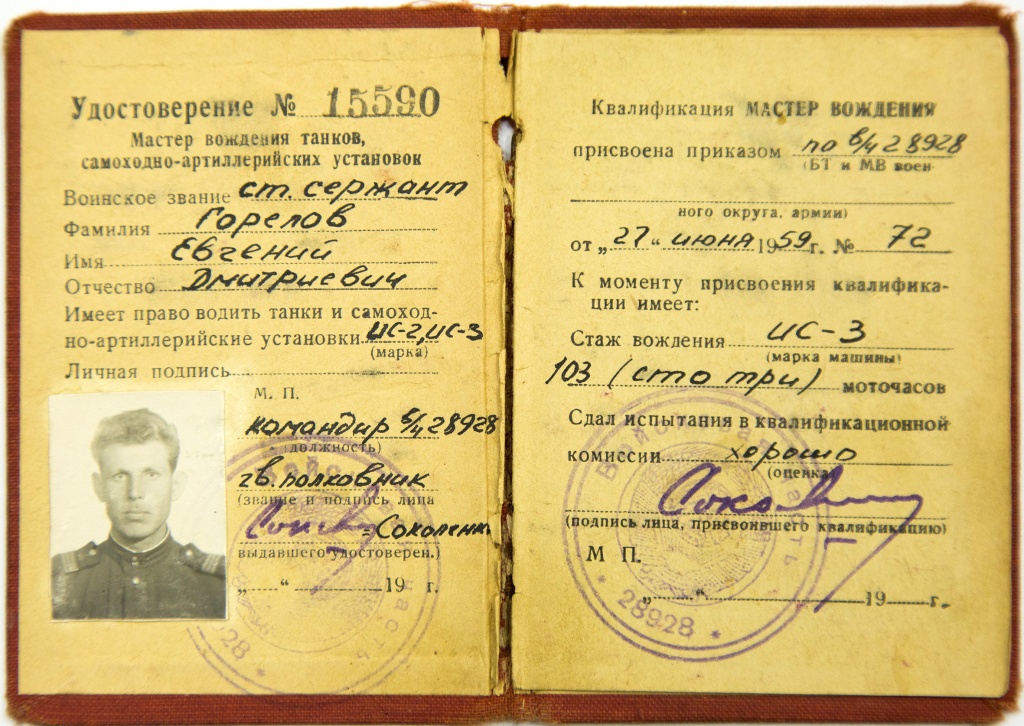 Удостоверение № 15590
Мастер вождения танков,
самоходно-артиллерийских установок
Воинское звание ст. сержант
Фамилия Горелов
Имя Евгений
Отчество Дмитриевич
Имеет право водить танки и самоход-
но-артиллерийские установки ИС-2, ИС-3
(марка)
Личная подпись
М. П.
командир в/ч 28928
(должность)
гв. полковник
(звание и подпись лица
Соколенко
выдавшего удостоверен.)
„ “ 19 г.
Войск
часть
28
Квалификация МАСТЕР ВОЖДЕНИЯ
присвоена приказом по в/ч 28928
(БТ и МВ воен-
ного округа, армии)
от „27“ июня 1959 г. № 72
К моменту присвоения квалифика-
ции имеет:
Стаж вождения ИС-3
(марка машины)
103 (сто три) моточасов
Сдал испытания в квалификационной
комиссии хорошо
(оценка)
(подпись лица, присвоившего квалификацию)
М П.
„ “ 19 г.
Войсковая часть
* 28928 *